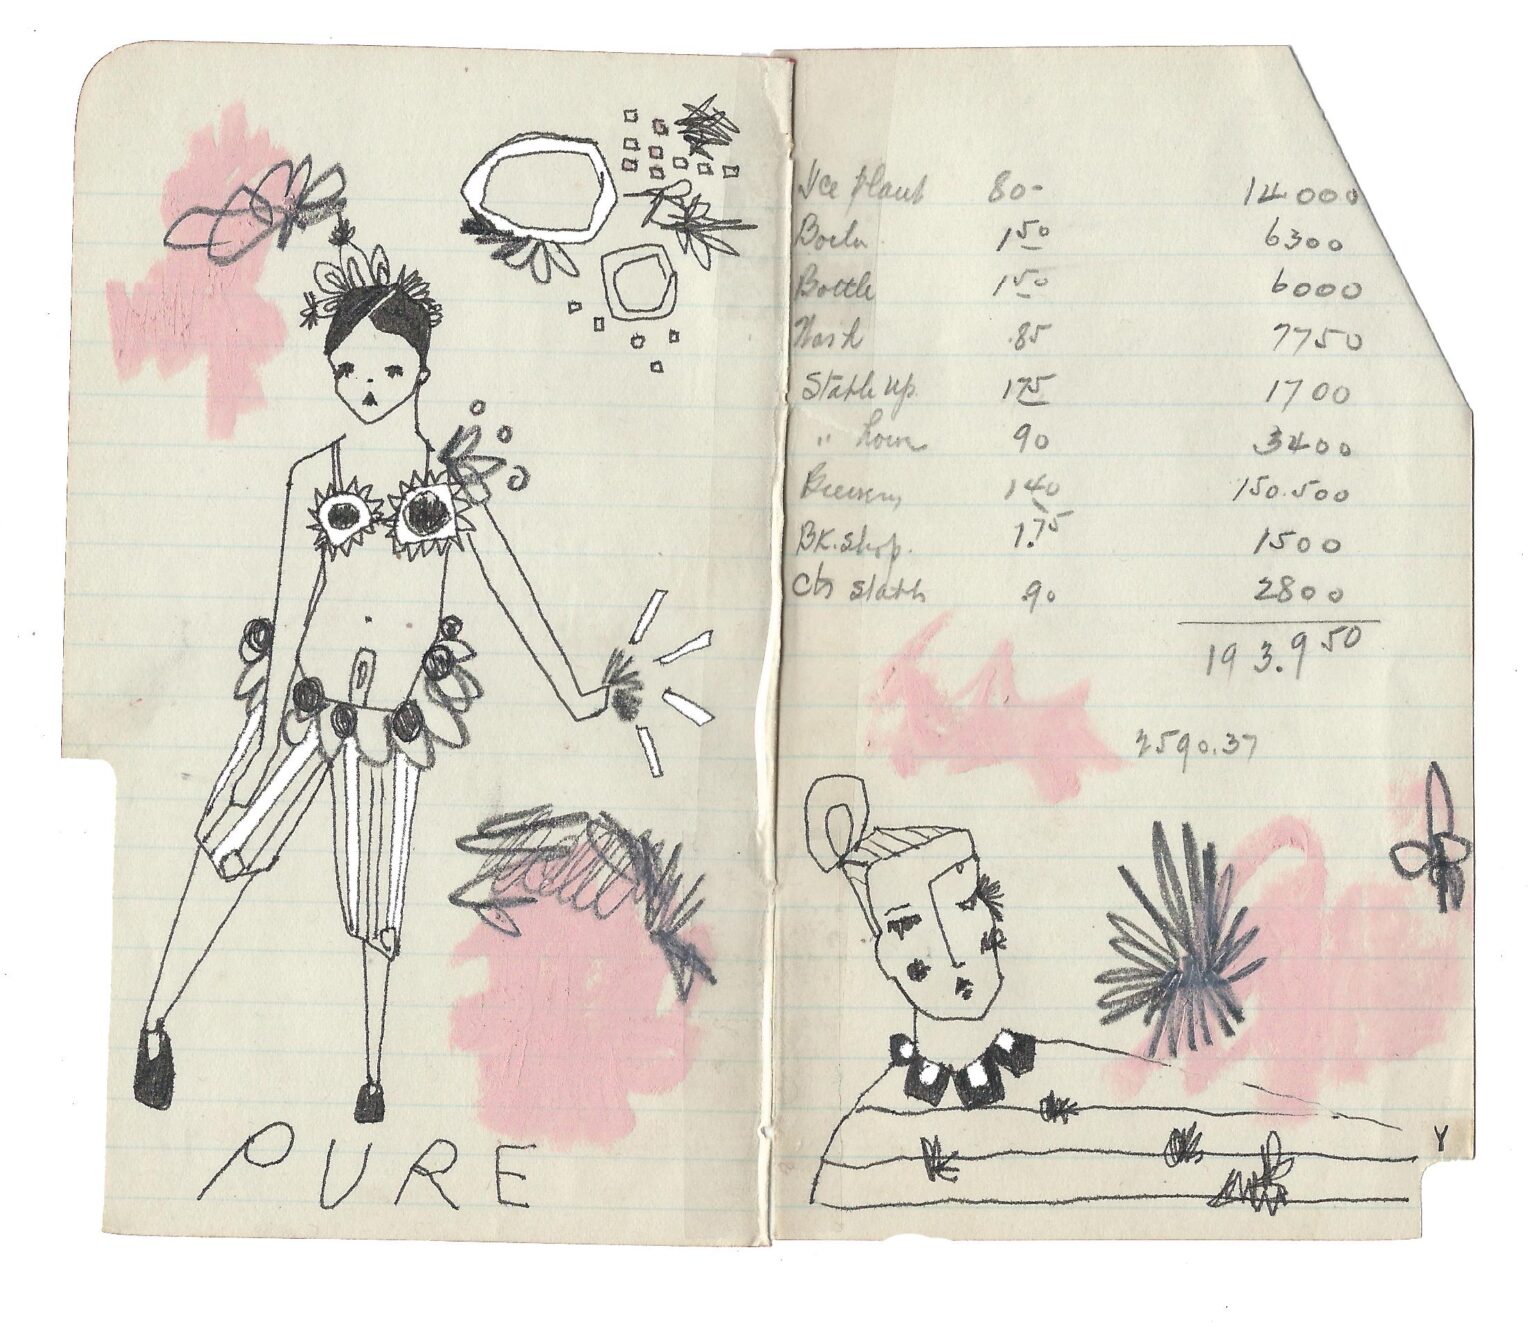 PURE
Ice plant 80- 14000
Boiler 1 50 6300
Bottle 1 50 6000
.85 7750
Stable up. 1 75 1700
" 90 3400
Brewery 1 40 150.500
BK. shop. 1.75 1500
.90 2800
193.9 50
2590.37
Y